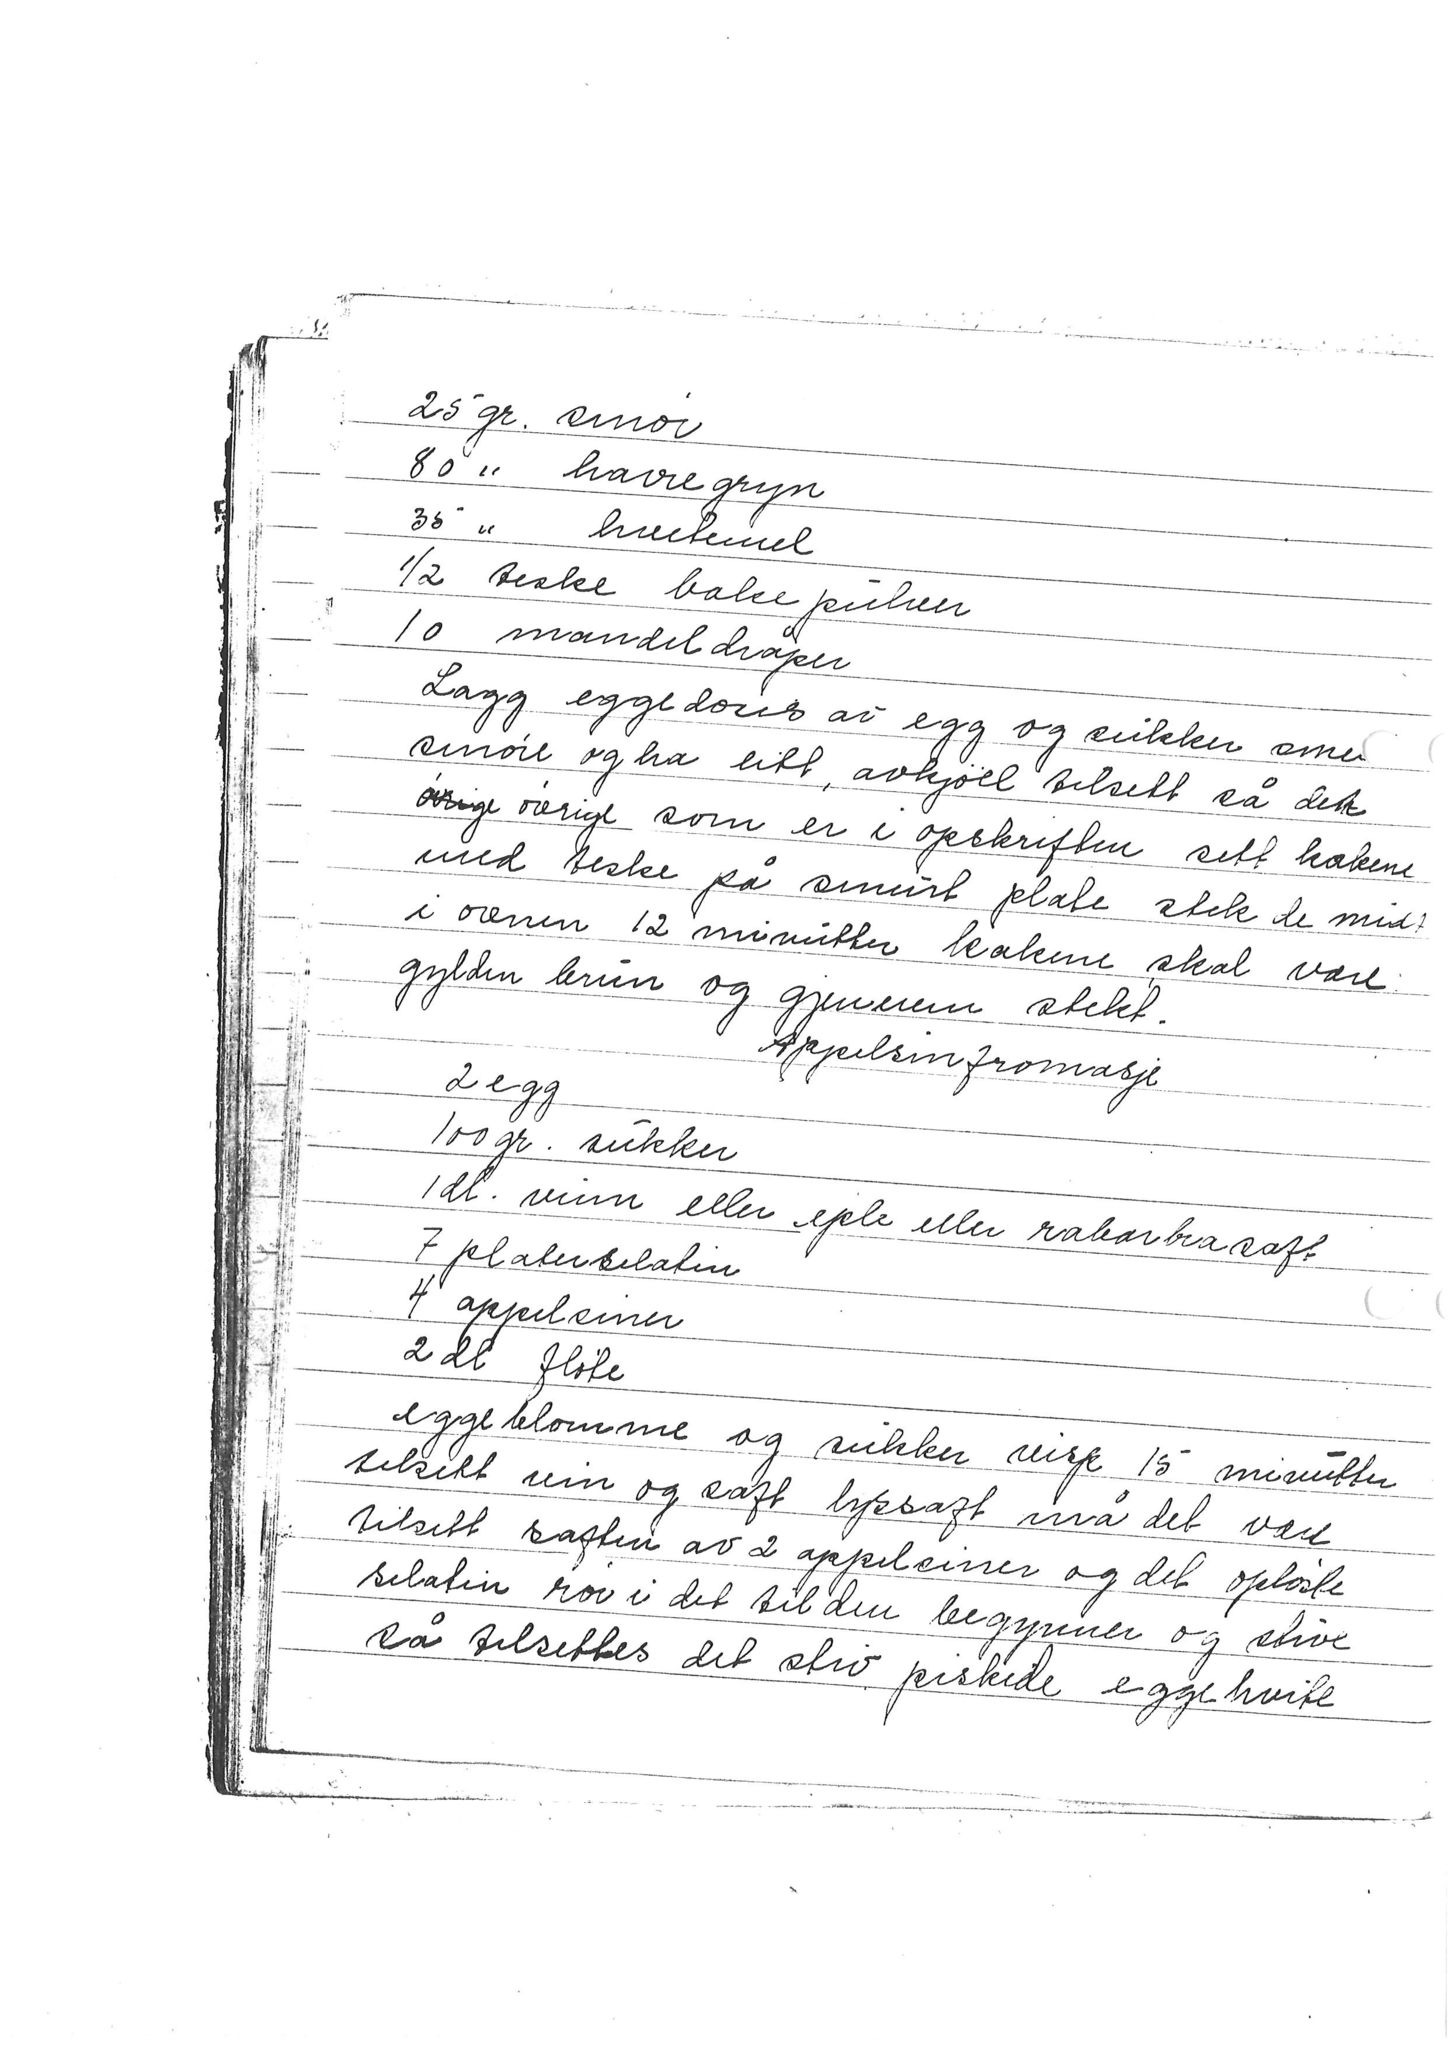 25 gr. smör
80 " havregryn
35 " hvetemel
1/2 teske bakepülver
10 mandeldråper
Lagg eggedosis av egg og sükker smel
smöre og ha litt, avkjöel tilsett så det
övrige som er i opskriften sett kakene
med teske på smürt plate stek de midt
i ovnen 12 minütter kakene skal være
gylden brün og gjennem stekt.
Appelsinfromasje
2 egg
100 gr. sükker
1 dl. vinn eller eple eller rabarbra saft
7 plater selatin
4 appelsiner
2 dl flöte
eggeblomme og sükker visp 15 minütter
tilsett vin og saft lyssaft må det være
tilsett saften av 2 appelsiner og det oplöste
selatin rör i det til den begynner og stive
så tilsettes det stiv piskede eggehvite